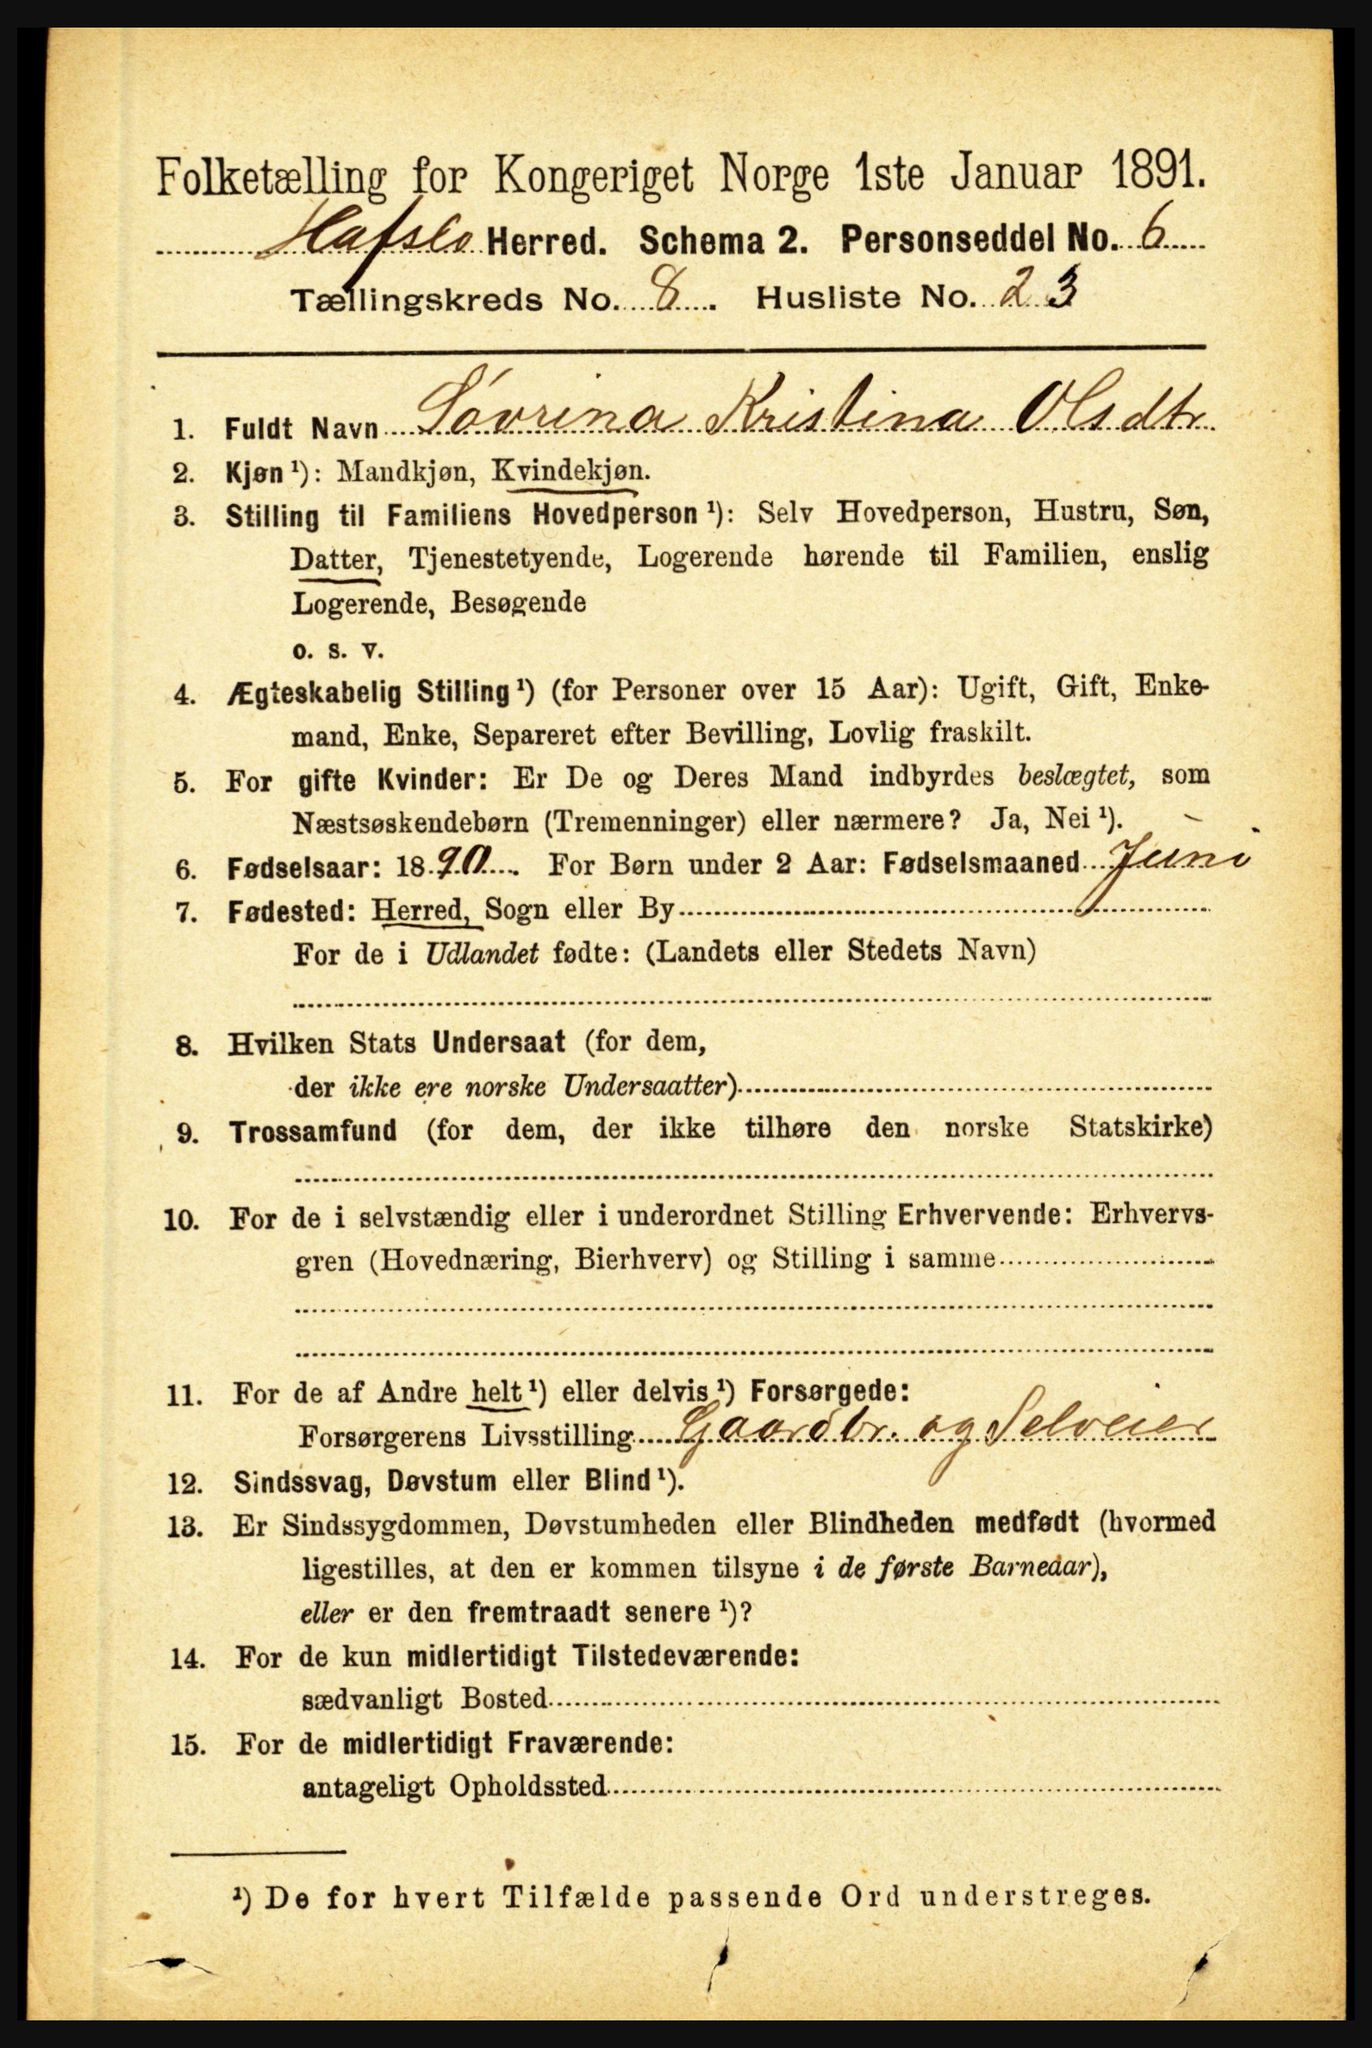 Folketælling for Kongeriget Norge 1ste Januar 1891.
Hafslo Herred. Schema 2. Personseddel No. 6
Tællingskreds No. 8. Husliste No. 23
1. Fuldt Navn Sovrina Kristina Olsdtr.
2. Kjøn ¹): Mandkjøn, Kvindekjøn.
3. Stilling til Familiens Hovedperson ¹): Selv Hovedperson, Hustru, Søn,
Datter, Tjenestetyende, Logerende hørende til Familien, enslig
Logerende, Besøgende
o. s. v.
4. Ægteskabelig Stilling ¹) (for Personer over 15 Aar): Ugift, Gift, Enke-
mand, Enke, Separeret efter Bevilling, Lovlig fraskilt.
5. For gifte Kvinder: Er De og Deres Mand indbyrdes beslægtet, som
Næstsøskendebørn (Tremenninger) eller nærmere? Ja, Nei ¹).
6. Fødselsaar: 1890. For Børn under 2 Aar: Fødselsmaaned Juni
7. Fødested: Herred, Sogn eller By
For de i Udlandet fødte: (Landets eller Stedets Navn)
8. Hvilken Stats Undersaat (for dem,
der ikke ere norske Undersaatter)
9. Trossamfund (for dem, der ikke tilhøre den norske Statskirke)
10. For de i selvstændig eller i underordnet Stilling Erhvervende: Erhvervs-
gren (Hovednæring, Bierhverv) og Stilling i samme
11. For de af Andre helt ¹) eller delvis ¹) Forsørgede:
Forsørgerens Livsstilling Gaardbr. og Selveier
12. Sindssvag, Døvstum eller Blind ¹).
13. Er Sindssygdommen, Døvstumheden eller Blindheden medfødt (hvormed
ligestilles, at den er kommen tilsyne i de første Barneaar),
eller er den fremtraadt senere ¹)?
14. For de kun midlertidigt Tilstedeværende:
sædvanligt Bosted
15. For de midlertidigt Fraværende:
antageligt Opholdssted
¹) De for hvert Tilfælde passende Ord understreges.